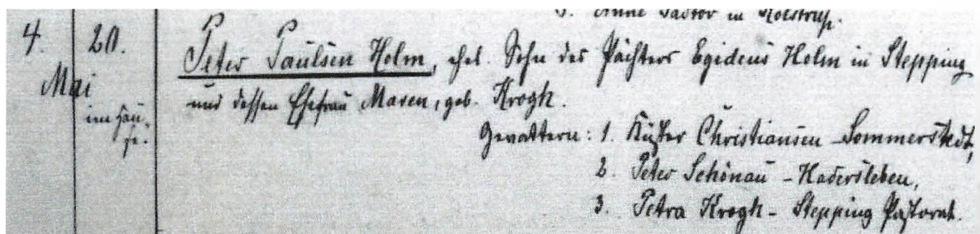 3. Anne Pastor in Holstrup.
4. 20. Peter Paulsen Holm, ehel. Sohn des Pächters Egideus Holm in Stepping
Mai
und dessen Ehefrau Maren, geb. Krogh.
im Hau-
se.
Gevattern: 1. Küster Christiansen - Sommerstedt,
2. Peter Schönau - Hadersleben,
3. Petra Krogh - Stepping Pastorat.